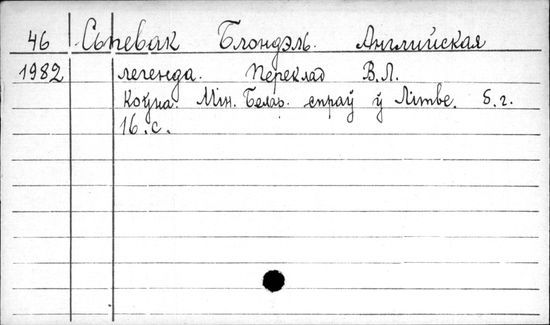 46 Сьпевак Блондэль. Английская
1982 легенда. Пераклад В.Л.
Коўна. Мін. Белар. спраў ў Літве. б.г.
16.с.